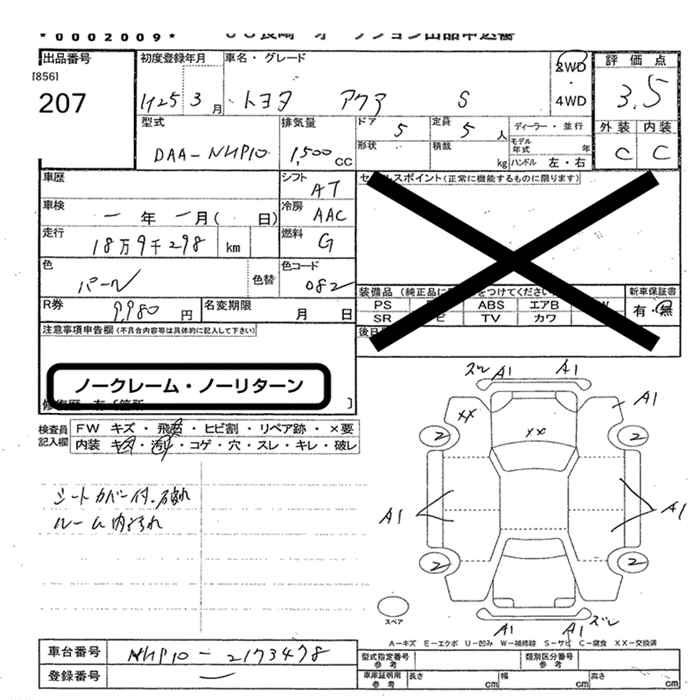 *0002009*
出品番号 初度登録年月 車名・グレード 2WD ・ 4WD 評価点
[856]
207 H25 3月 トヨタ アクア S 3.5
型式 排気量 ドア 5 定員 5人 ディーラー・並行 外装 内装
DAA-NHP10 1,500cc 形状 積載 kg モデル年式 年 ハンドル 左・右 C C
車歴 シフト AT
車検 ー年ー月( 日) 冷房 AAC
走行 18万9千298 km 燃料 G
色 パール 色替 色コード 082
R券 9,980円 名変期限 月 日
セールスポイント(正常に機能するものに限ります)
新車保証書
PS ABS エアB 有・無
SR TV カワ
注意事項申告欄(不具合内容等は具体的に記入して下さい)
ノークレーム・ノーリターン
検査員記入欄
FW キズ・飛石・ヒビ割・リペア跡・×要
内装 キズ・汚れ・コゲ・穴・スレ・キレ・破レ
シートカバー付・破れ
ルーム内汚れ
ズレ A1 A1
XX XX A1
2 2
A1 A1
2 2
スペア
A1 A1 ズレ
A-キズ E-エクボ U-凹み W-補修跡 S-サビ C-腐食 XX-交換済
車台番号 NHP10-2173478
登録番号 ー
型式指定番号 参考 類別区分番号 参考
車庫証明用 参考 長さ cm 幅 cm 高さ cm